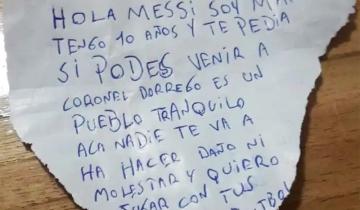 HOLA MESSI SOY
TENGO 10 AÑOS Y TE PEDIA
SI PODES VENIR A
CORONEL DORREGO ES UN
PUEBLO TRANQUILO
ACA NADIE TE VA A
HA HACER DAÑO NI
MOLESTAR Y QUIERO
JUGAR CON TUS